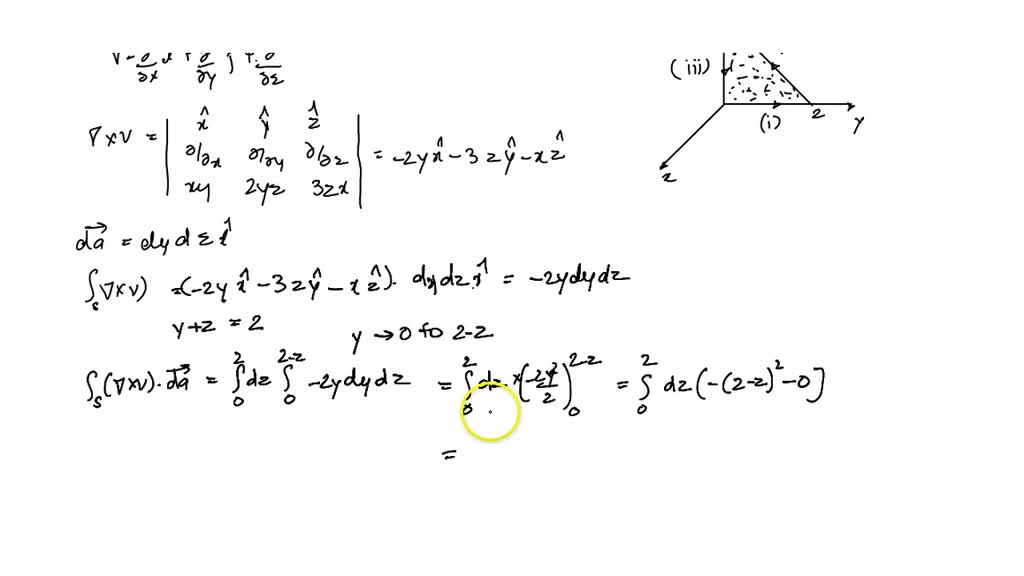 ∇ = ∂/∂x x̂ + ∂/∂y ŷ + ∂/∂z
(iii)
(i) 2 y
x
∇×v = | x̂ ŷ ẑ |
| ∂/∂x ∂/∂y ∂/∂z | = -2y x̂ - 3z ŷ - x ẑ
| xy 2yz 3zx |
da⃗ = dy dz x̂
∫ₛ ∇×v) = (-2y x̂ - 3z ŷ - x ẑ). dy dz x̂ = -2y dy dz
y+z = 2 y → 0 to 2-z
∫ₛ (∇×v).da⃗ = ∫₀² dz ∫₀²⁻ᶻ -2y dy dz = ∫₀² dz × (-2y²/2)₀²⁻ᶻ = ∫₀² dz (-(2-z)² - 0]
=